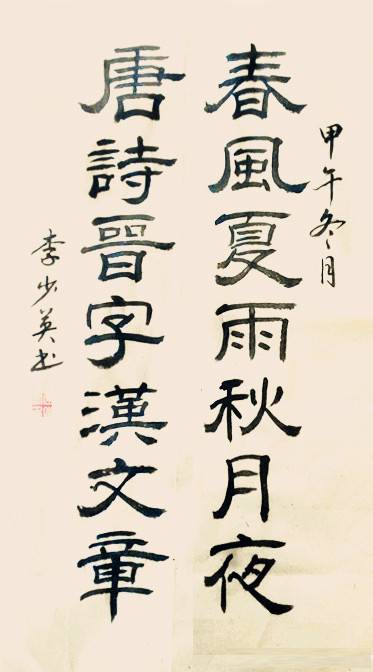 甲午冬月
春風夏雨秋月夜
唐詩晉字漢文章
李少英书